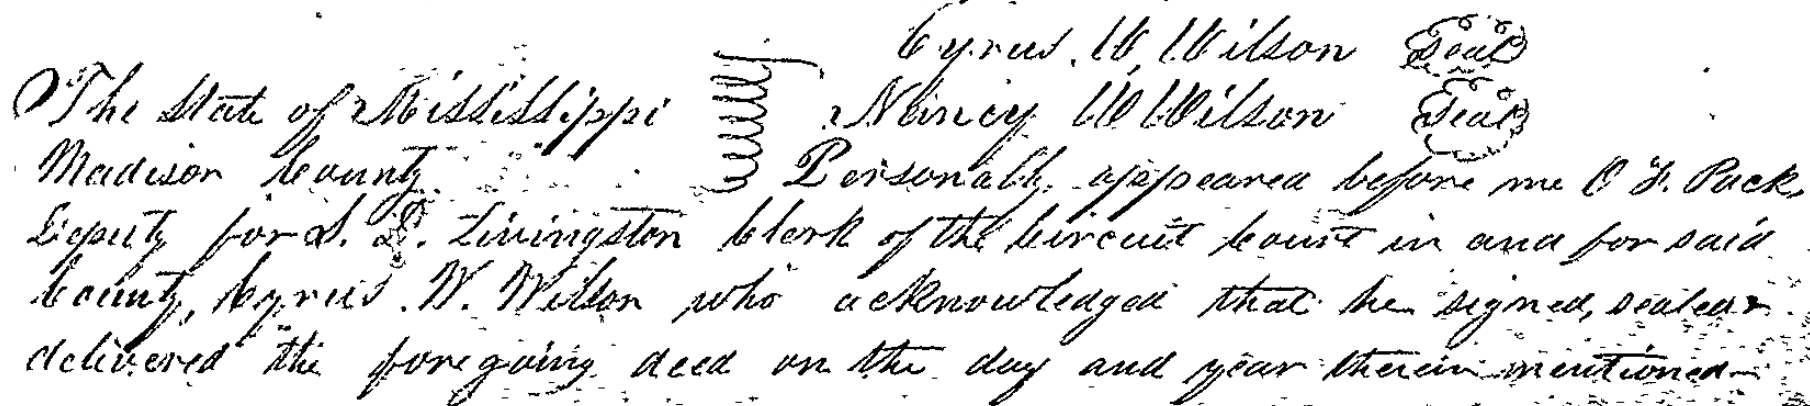 Cyrus. W. Wilson Seal
The State of Mississippi Nancy W Wilson Seal
Madison County Personally appeared before me O F. Pack
Deputy for S. D. Livingston Clerk of the Circuit Court in and for said
County, Cyrus. W. Wilson who acknowledged that he signed, sealed &
delivered the foregoing deed on the day and year therein mentioned